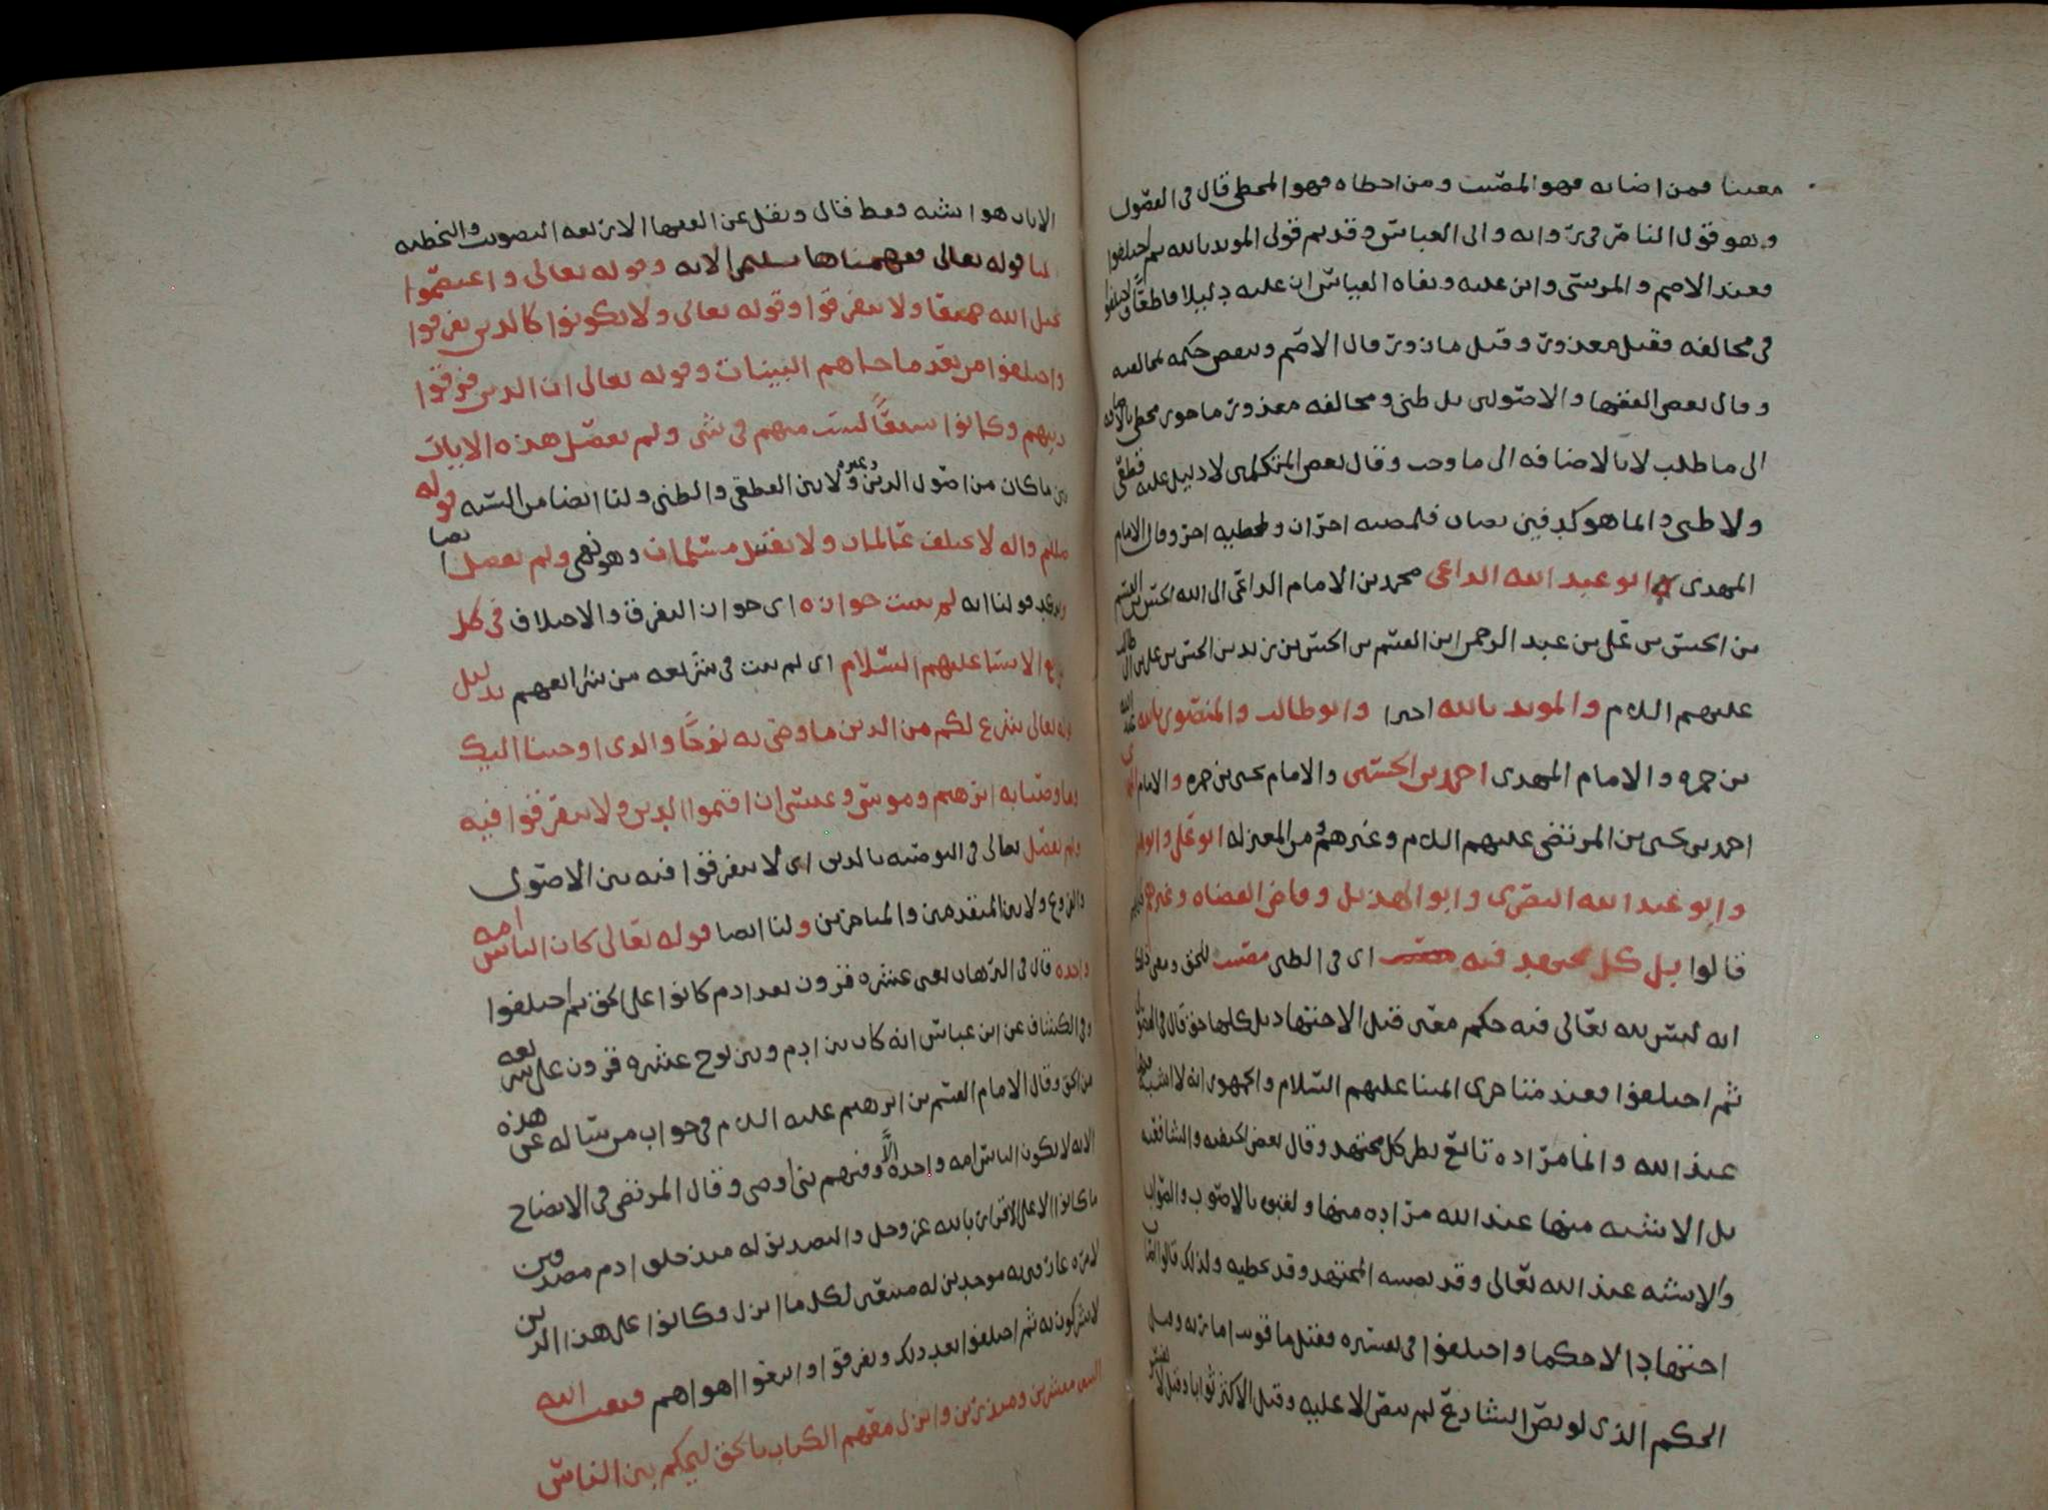 معينا فمن اصابه فهو المصيب ومن اخطاه فهو المخطي قال في الفصول
وهو قول الناصر في روايه وابي العباس وقديم قولي المويد بالله ثم اختلفوا
فعند الاصم والمريسي وابن عليه ونفاه القياس ان عليه دليلا قاطعا واختلفوا
في مخالفه فقيل معذور وقيل مازور قال الاصم وينقض حكمه بمخالفته
وقال بعض الفقها والاصوليين بل ظني ومخالفه معذور ماجور مخطي بالاضافه
الى ما طلب لا بالاضافه الى ما وجب وقال بعض المتكلمين لا دليل عليه قطعي
ولا ظني وانما هو كدفين يصاب فلمصيبه اجران ولمخطيه اجر وقال الامام
المهدي ابو عبد الله الداعي محمد بن الامام الداعي الى الله الحسن بن القسم
بن الحسن بن علي بن عبد الرحمن ابن القسم بن الحسن بن زيد بن الحسن بن علي بن ابي طالب
عليهم السلام والمويد بالله اخيرا وابو طالب والمنصور بالله عبد الله
بن حمزه والامام المهدي احمد بن الحسين والامام يحيى بن حمزه والامام المهدي
احمد بن يحيى بن المرتضى عليهم السلام وغيرهم ومن المعتزله ابو علي وابو هاشم
وابو عبد الله البصري وابو الهذيل وقاضي القضاه وغيرهم
قالوا بل كل مجتهد فيه اي في الظني مصيب للحق ومعنى ذلك
انه ليس لله تعالى فيه حكم معين قبل الاجتهاد بل كلها حق قال في الفصول
ثم اختلفوا فعند متاخري ايمتنا عليهم السلام والجمهور انه لا اشبه منها
عند الله وانما مراده تابع لظن كل مجتهد وقال بعض الحنفيه والشافعيه
بل الاشبه منها عند الله مراده منها ولقبوه بالاصوب والصواب
والاشبه عند الله تعالى وقد يصيبه المجتهد وقد يخطيه ولذلك قالوا اصاب
اجتهادا لا حكما واختلفوا في تفسيره فقيل ما قويت امارته وقيل
الحكم الذي لو نص الشارع لم ينص الا عليه وقيل الاكثر ثوابا وقيل لا يفسر
الا بانه هو اشبه فقط قال ونقل عن الفقها الاربعه التصويب والتخطيه
لنا قوله تعالى ففهمناها سليمن الايه وقوله تعالى واعتصموا
بحبل الله جميعا ولا تفرقوا وقوله تعالى ولا تكونوا كالذين تفرقوا
واختلفوا من بعد ما جاهم البينات وقوله تعالى ان الذين فرقوا
دينهم وكانوا شيعا لست منهم في شي ولم يفصل هذه الايات
بين ما كان من اصول الدين وغيره ولا بين القطعي والظني ولنا ايضا من السنه قوله
صلى الله عليه واله لا يختلف عالمان ولا يقتتل مسلمان وهو نهي ولم يفصل ايضا
ويوكد قولنا انه لم يثبت جوازه اي جواز التفرق والاختلاف في كل
شرايع الانبيا عليهم السلام اي لم يثبت في شريعه من شرايعهم بدليل
قوله تعالى شرع لكم من الدين ما وصى به نوحا والذي اوحينا اليك
وما وصينا به ابرهيم وموسى وعيسى ان اقيموا الدين ولا تتفرقوا فيه
ولم يفصل تعالى في التوصيه بالدين اي لا تتفرقوا فيه بين الاصول
والفروع ولا بين المتقدمين والمتاخرين ولنا ايضا قوله تعالى كان الناس امه
واحده قال في البرهان يعني عشره قرون بعد ادم كانوا على الحق ثم اختلفوا
وفي الكشاف عن ابن عباس انه كان بين ادم وبين نوح عشره قرون على شريعه
من الحق وقال الامام القسم بن ابرهيم عليه السلام في جواب من ساله عن هذه
الايه لا يكون الناس امه واحده الا وفيهم نبي او وصي وقال المرتضى في الايضاح
ما كانوا الا على الاقرار بالله عز وجل والتصديق له منذ خلق ادم مصدقين
لامره عارفين به موحدين له متبعين لكل ما انزل فكانوا على هذا الدين
لا يشركون به ثم اختلفوا بعد ذلك وتفرقوا واتبعوا اهواهم فبعث الله
النبيين مبشرين ومنذرين وانزل معهم الكتاب بالحق ليحكم بين الناس